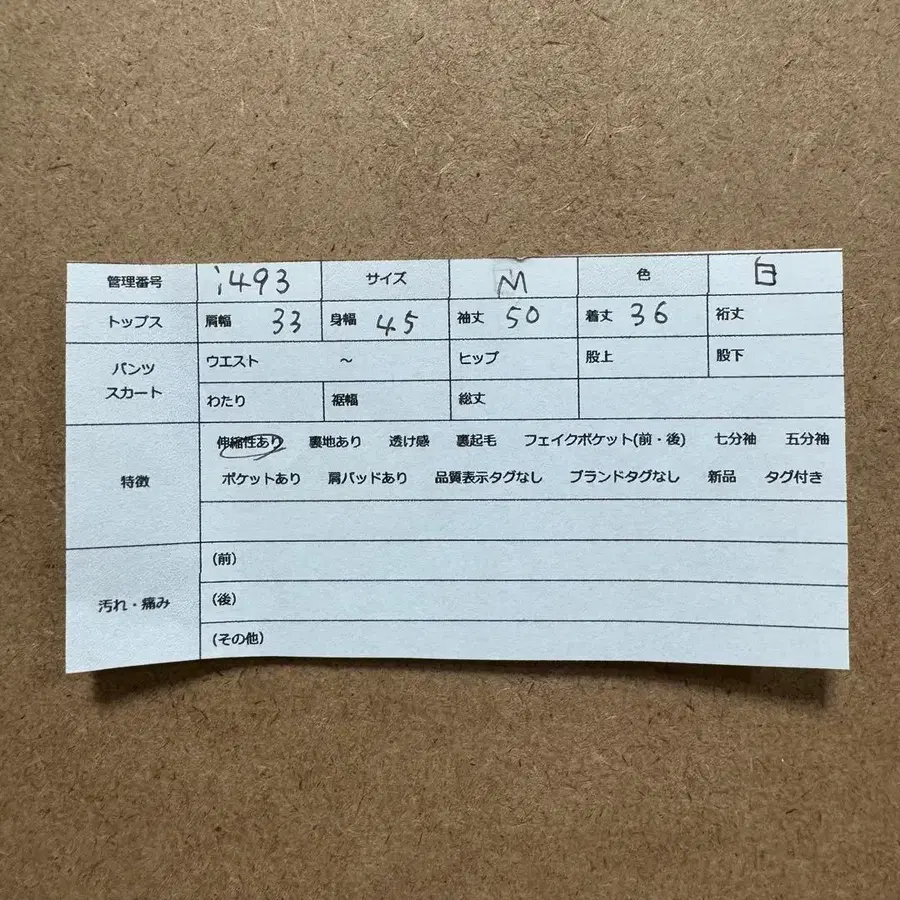 管理番号 i493 サイズ M 色 白
トップス 肩幅 33 身幅 45 袖丈 50 着丈 36 裄丈
パンツ スカート ウエスト ～ ヒップ 股上 股下
わたり 裾幅 総丈
特徴 伸縮性あり 裏地あり 透け感 裏起毛 フェイクポケット(前・後) 七分袖 五分袖
ポケットあり 肩パッドあり 品質表示タグなし ブランドタグなし 新品 タグ付き
汚れ・痛み (前)
(後)
(その他)